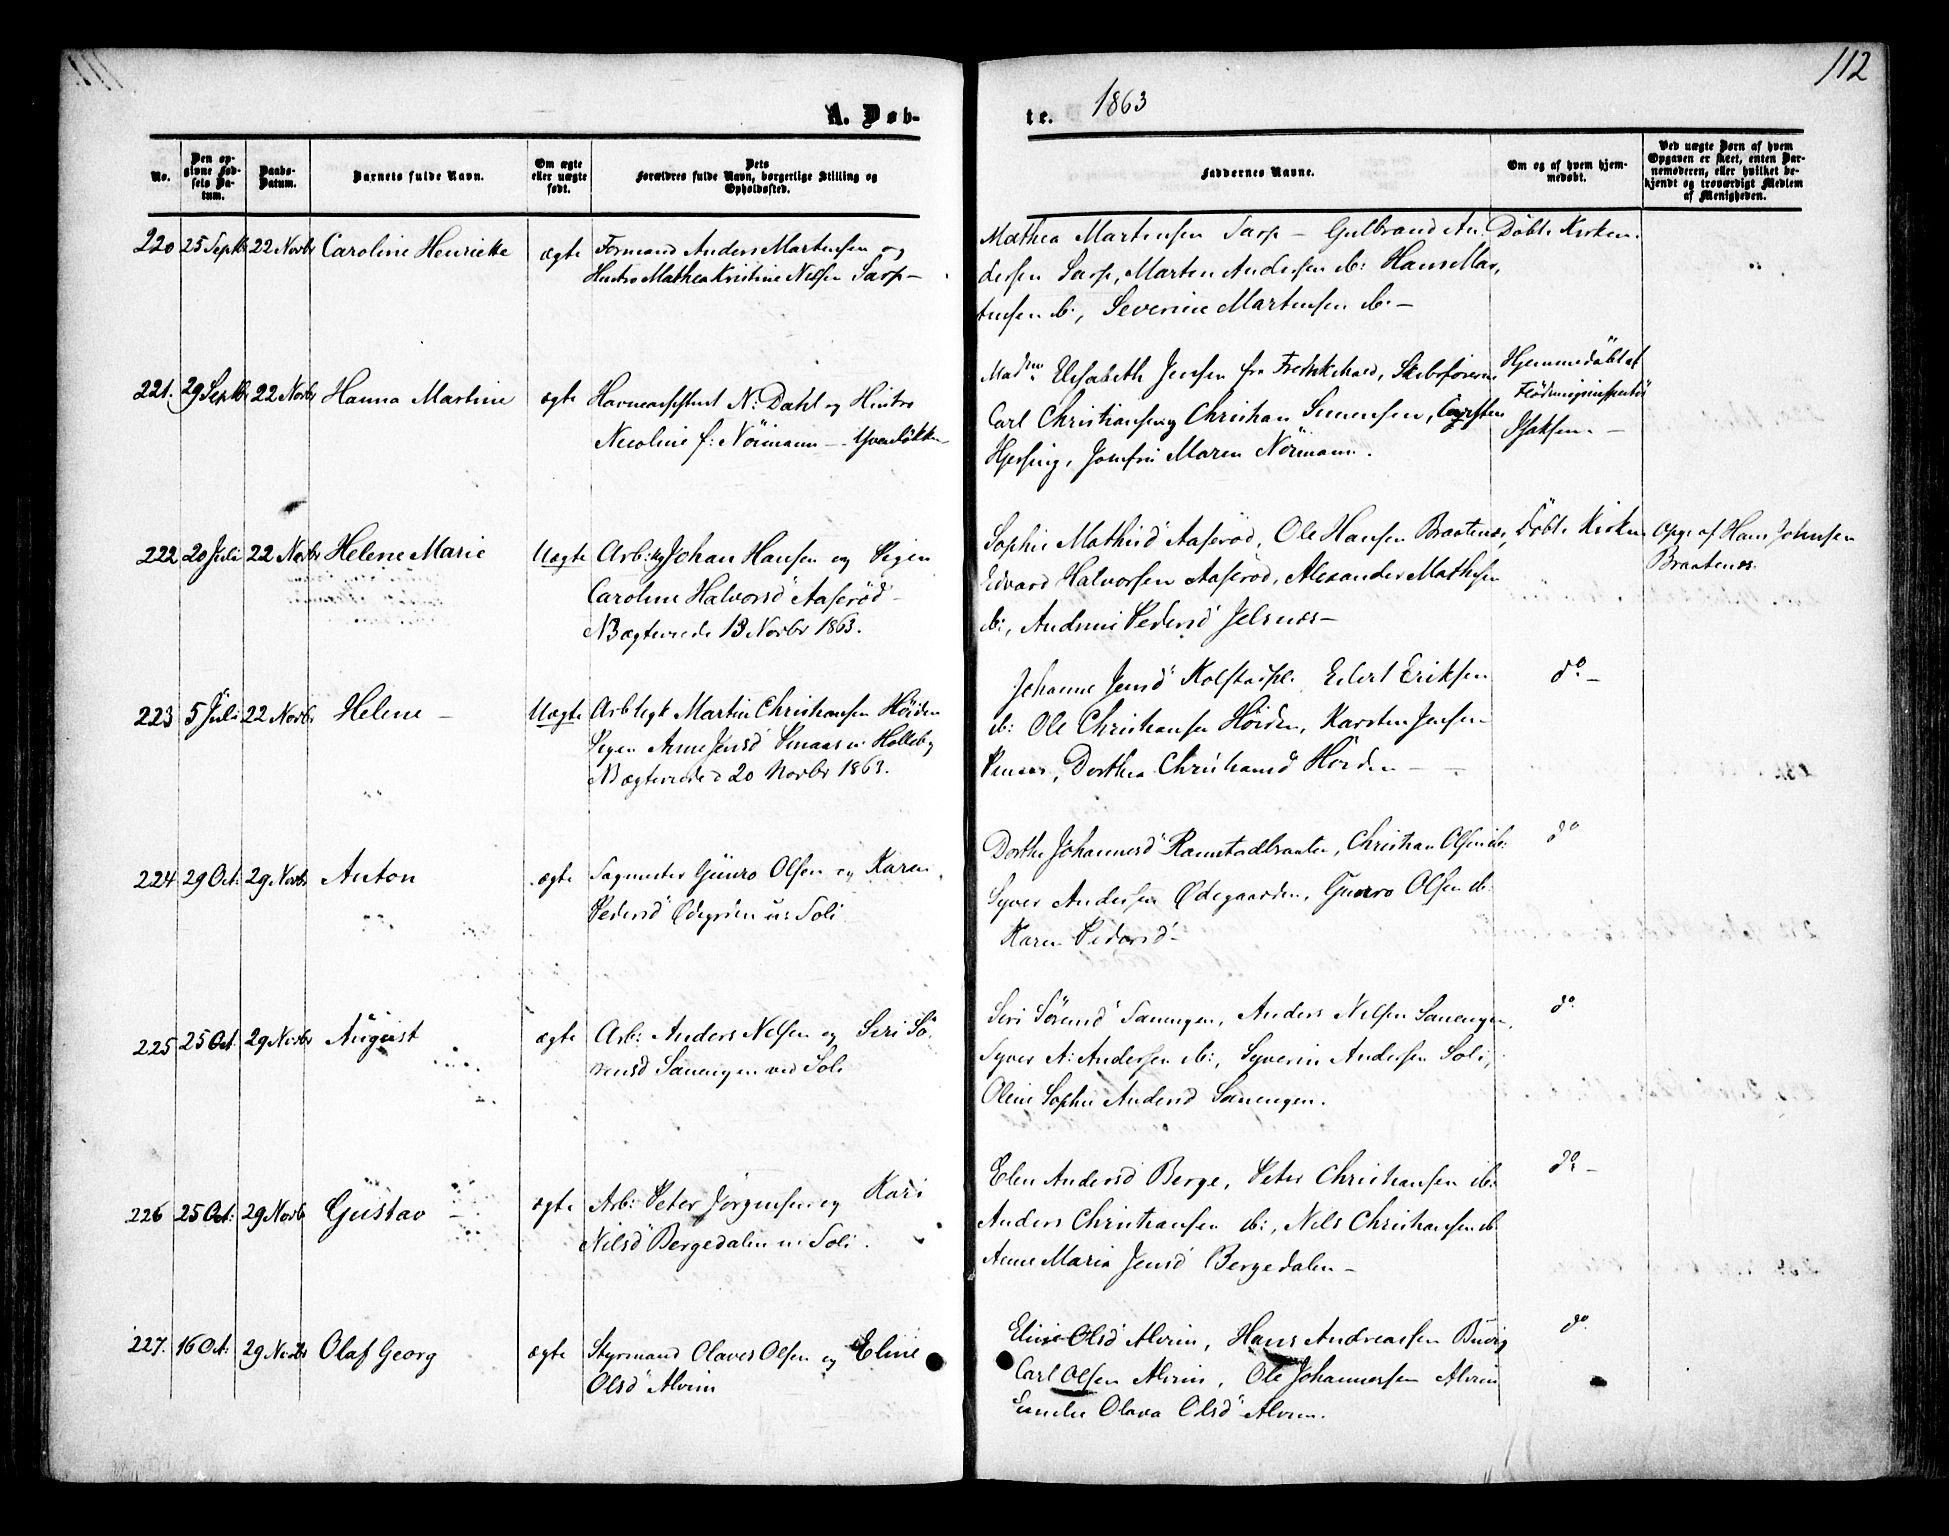 112
1863
A. Døb-
te.
No.
Den op-
givne Fød-
sels Da-
tum.
Daabs-
Datum.
Barnets fulde Navn.
Om ægte
eller uægte
født.
Dets
Forældres fulde Navn, borgerlige Stilling og
Opholdssted.
Faddernes Navne.
Om og af hvem hjem-
medøbt.
Ved uægte Børn af hvem
Opgaven er skeet, enten Bar-
nemoderen, eller hvilket be-
kjendt og troværdigt Medlem
af Menigheden.
220 25 Septbr 22 Novbr Caroline Henriette ægte Formand Anders Martinsen og
Hustro Mathea Kristine Nilsen Sarp –
Mathea Martinsen Sarp – Gulbrand An-
dersen Sarp, Marten Andersen ib: Hans Mar-
tinsen ib:, Severine Martinsen ib: –
Döbt i Kirken.
221. 29 Septbr 22 Novbr Hanna Martine ægte Havneassistent N: Dahl og Hustro
Nicoline f: Nörmann –
Madm Elisabeth Jensen fra Fredrikshald,
Carl Christiansen og Christian Simensen,
Hjersing, Jomfru Maren Nörmann.
Hjemmedöbt af
Flödningsinspektör
Isaksen –
222 20 Juli 22 Novbr Helene Marie Uægte Arb: Johan Hansen og Pigen
Caroline Halvorsd Aaseröd –
NB ægteviede 13 Novbr 1863.
Sophie Mathisd Aaseröd, Ole Hansen Braatenæs,
Edvard Halvorsen Aaserod, Alexander Mathisen
ib:, Andrine Pedersd Jelsnæs –
Döbt i Kirken
Opgr af Hans Johnsen
Braatenæs.
223 5 Juli 22 Novbr Helene – Uægte Arb Ugk Martin Christiansen Höiden
Pigen Anne Jensd Holleby
NB ægteviede 20 Novbr 1863.
Johanne Jensd Kolstadpl. Edert Eriksen
ib: Ole Christiansen Höiden, Karsten Jensen
Dorthea Christiansd Höiden –
do –
224 29 Oct: 29 Novbr Anton ægte Sagmester Gunro Olsen og Karen
Pedersd Ödegrden u: Soli
Dorthe Johannesd Ramstadbraaten, Christian Olsen ib:
Syver Andersen Ödegaarden, Gunro Olsen ib:
Karen Pedersd –
do
225 25 Oct 29 Novbr August ægte Arb: Anders Nelsen og Siri Sö-
rensd Sanengen ved Soli
Siri Sörensd Sanengen, Anders Nelsen Sanengen,
Syver A: Andersen ib:, Syverin Andersen Soli,
Oline Sophie Andersd Sanengen.
do.
226 25 Oct: 29 Novb Gustav – ægte Arb: Peter Jörgensen og Kari
Nilsd Bergedalen u: Soli.
Elen Andersd Berge, Peter Christiansen ib:
Anders Christiansen ib:, Nils Christiansen ib:
Anne Maria Jensd Bergedalen –
do –
227. 16 Oct: 29 Novbr Olaf Georg ægte Styrmand Claves Olsen og Eline
Olsd Alvim
Eline Olsd Alvim, Hans Andreassen
Carl Olsen Alvim, Ole Johannessen Alvim
Olava Olsd Alvim.
do.